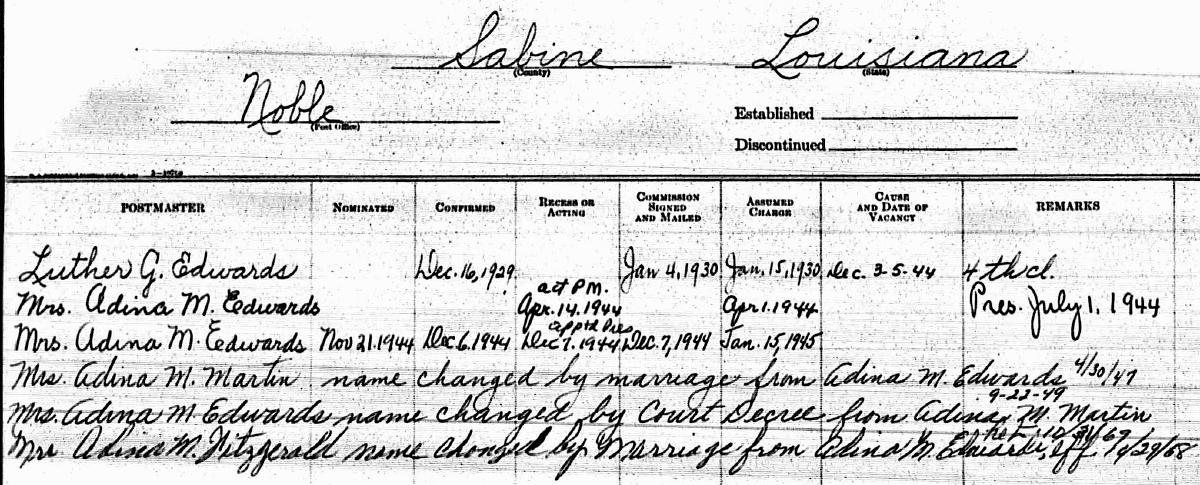 Sabine Louisiana
(County) (State)
Noble
(Post Office)
Established
Discontinued
POSTMASTER NOMINATED CONFIRMED RECESS OR ACTING COMMISSION SIGNED AND MAILED ASSUMED CHARGE CAUSE AND DATE OF VACANCY REMARKS
Luther G. Edwards Dec. 16, 1929 Jan 4, 1930 Jan. 15, 1930 Dec. 3-5-44 4th cl.
act P.M.
Mrs. Adina M. Edwards Apr. 14. 1944 Apr. 1. 1944 Pres. July 1, 1944
apptd Pres
Mrs. Adina M. Edwards Nov 21. 1944 Dec 6. 1944 Dec 7. 1944 Dec. 7, 1944 Jan. 15, 1945
Mrs. Adina M. Martin name changed by marriage from Adina M. Edwards 4/30/47
9-22-49
Mrs. Adina M. Edwards name changed by Court Decree from Adina M. Martin
Mrs Adina M. Fitzgerald name changed by Marriage from Adina M. Edwards, eff.